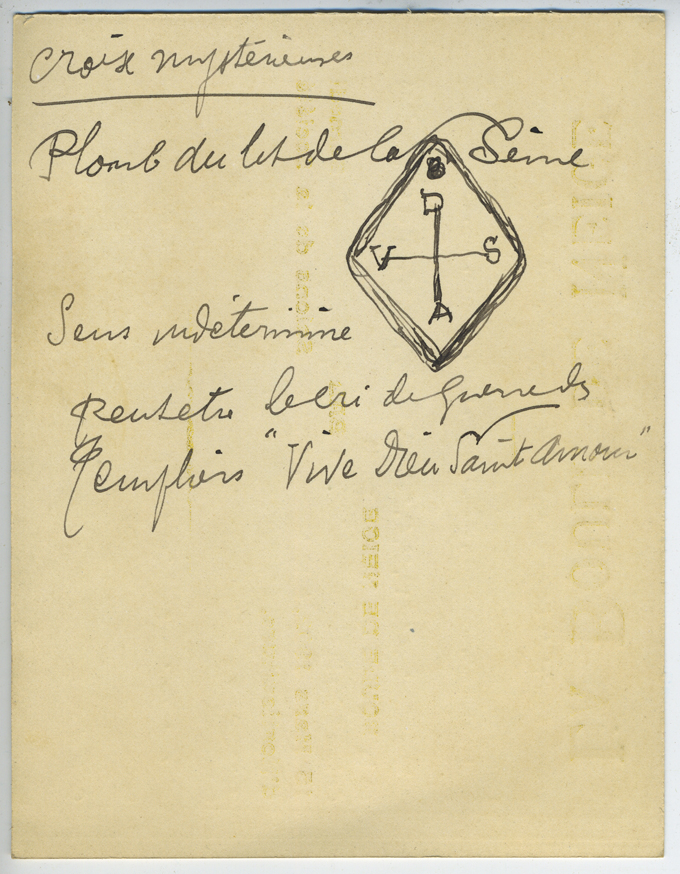 Croix mystérieuses
Plomb du lit de la Seine
B
D
V S
A
Sens indéterminé
peutetre le cri de guerre des
Templiers "Vive Dieu Saint Amour"
LA BOULE DE NEIGE
BOULE DE NEIGE